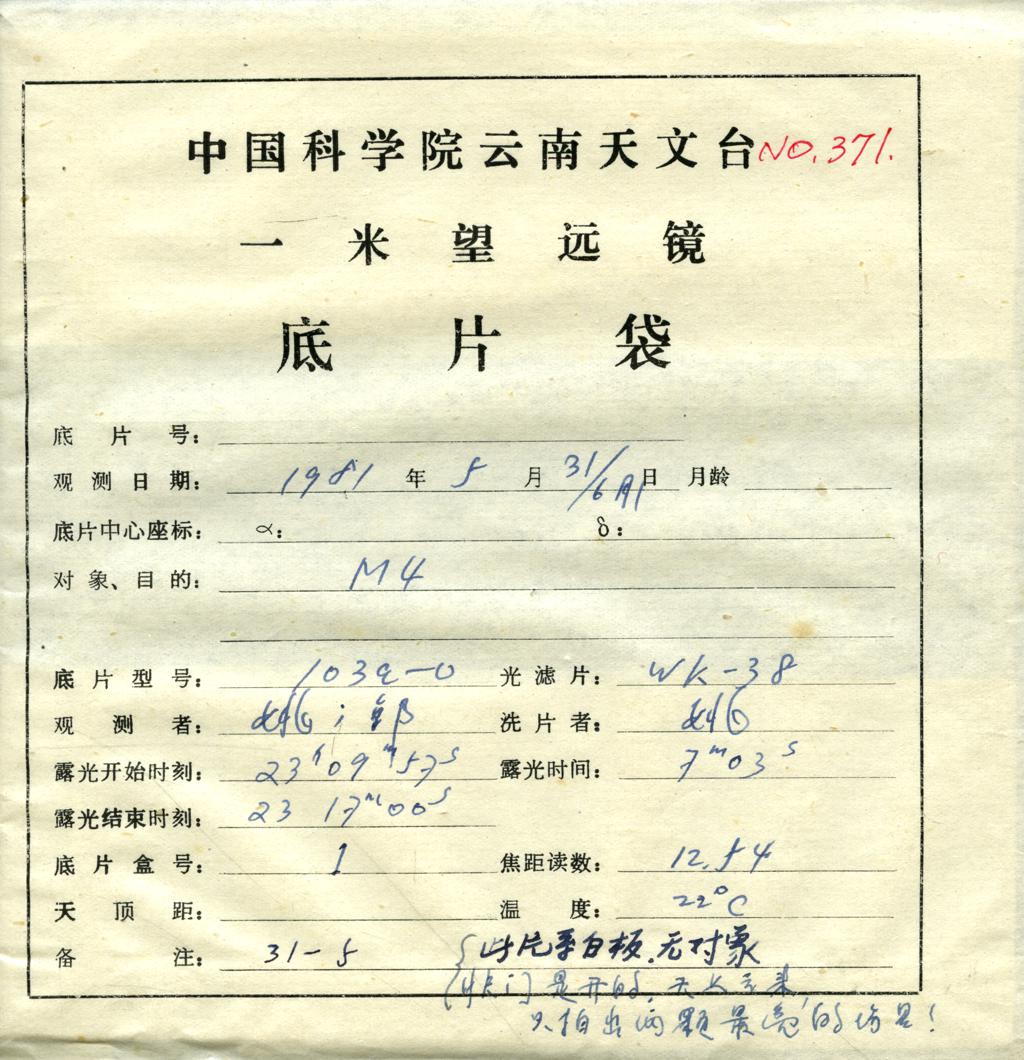 中国科学院云南天文台 NO.371.
一米望远镜
底片袋
底片号:
观测日期: 1981 年 5 月 31/6月1 日 月龄
底片中心座标: α: δ:
对象、目的: M4
底片型号: 103a-O 光滤片: WK-38
观测者: 洗片者:
露光开始时刻: 23h09m57s 露光时间: 7m03s
露光结束时刻: 23 17m00s
底片盒号: 1 焦距读数: 12.54
天顶距: 温度: 22°C
备注: 31-5 此片系白板.无对象
快门是开的,天上云来,
只拍出两颗最亮的场星!